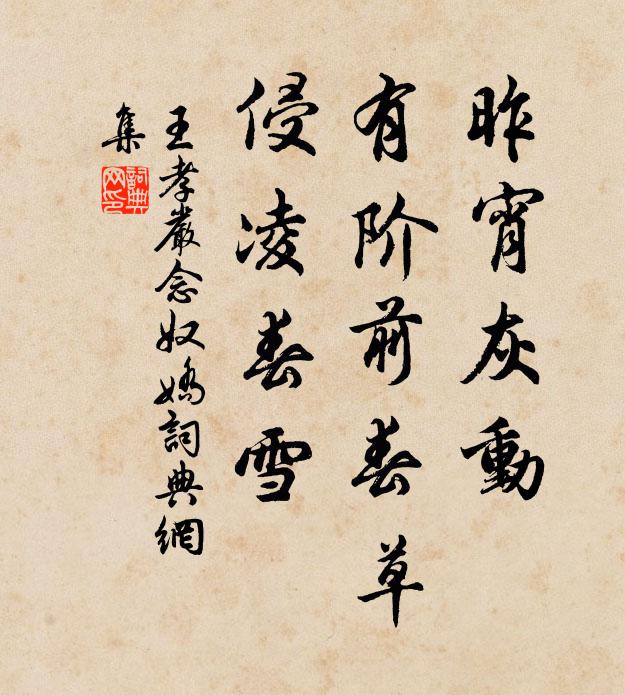 昨宵灰動
有阶前春草
侵凌春雪
王孝嚴念奴嬌詞典網
集
詞典
网印